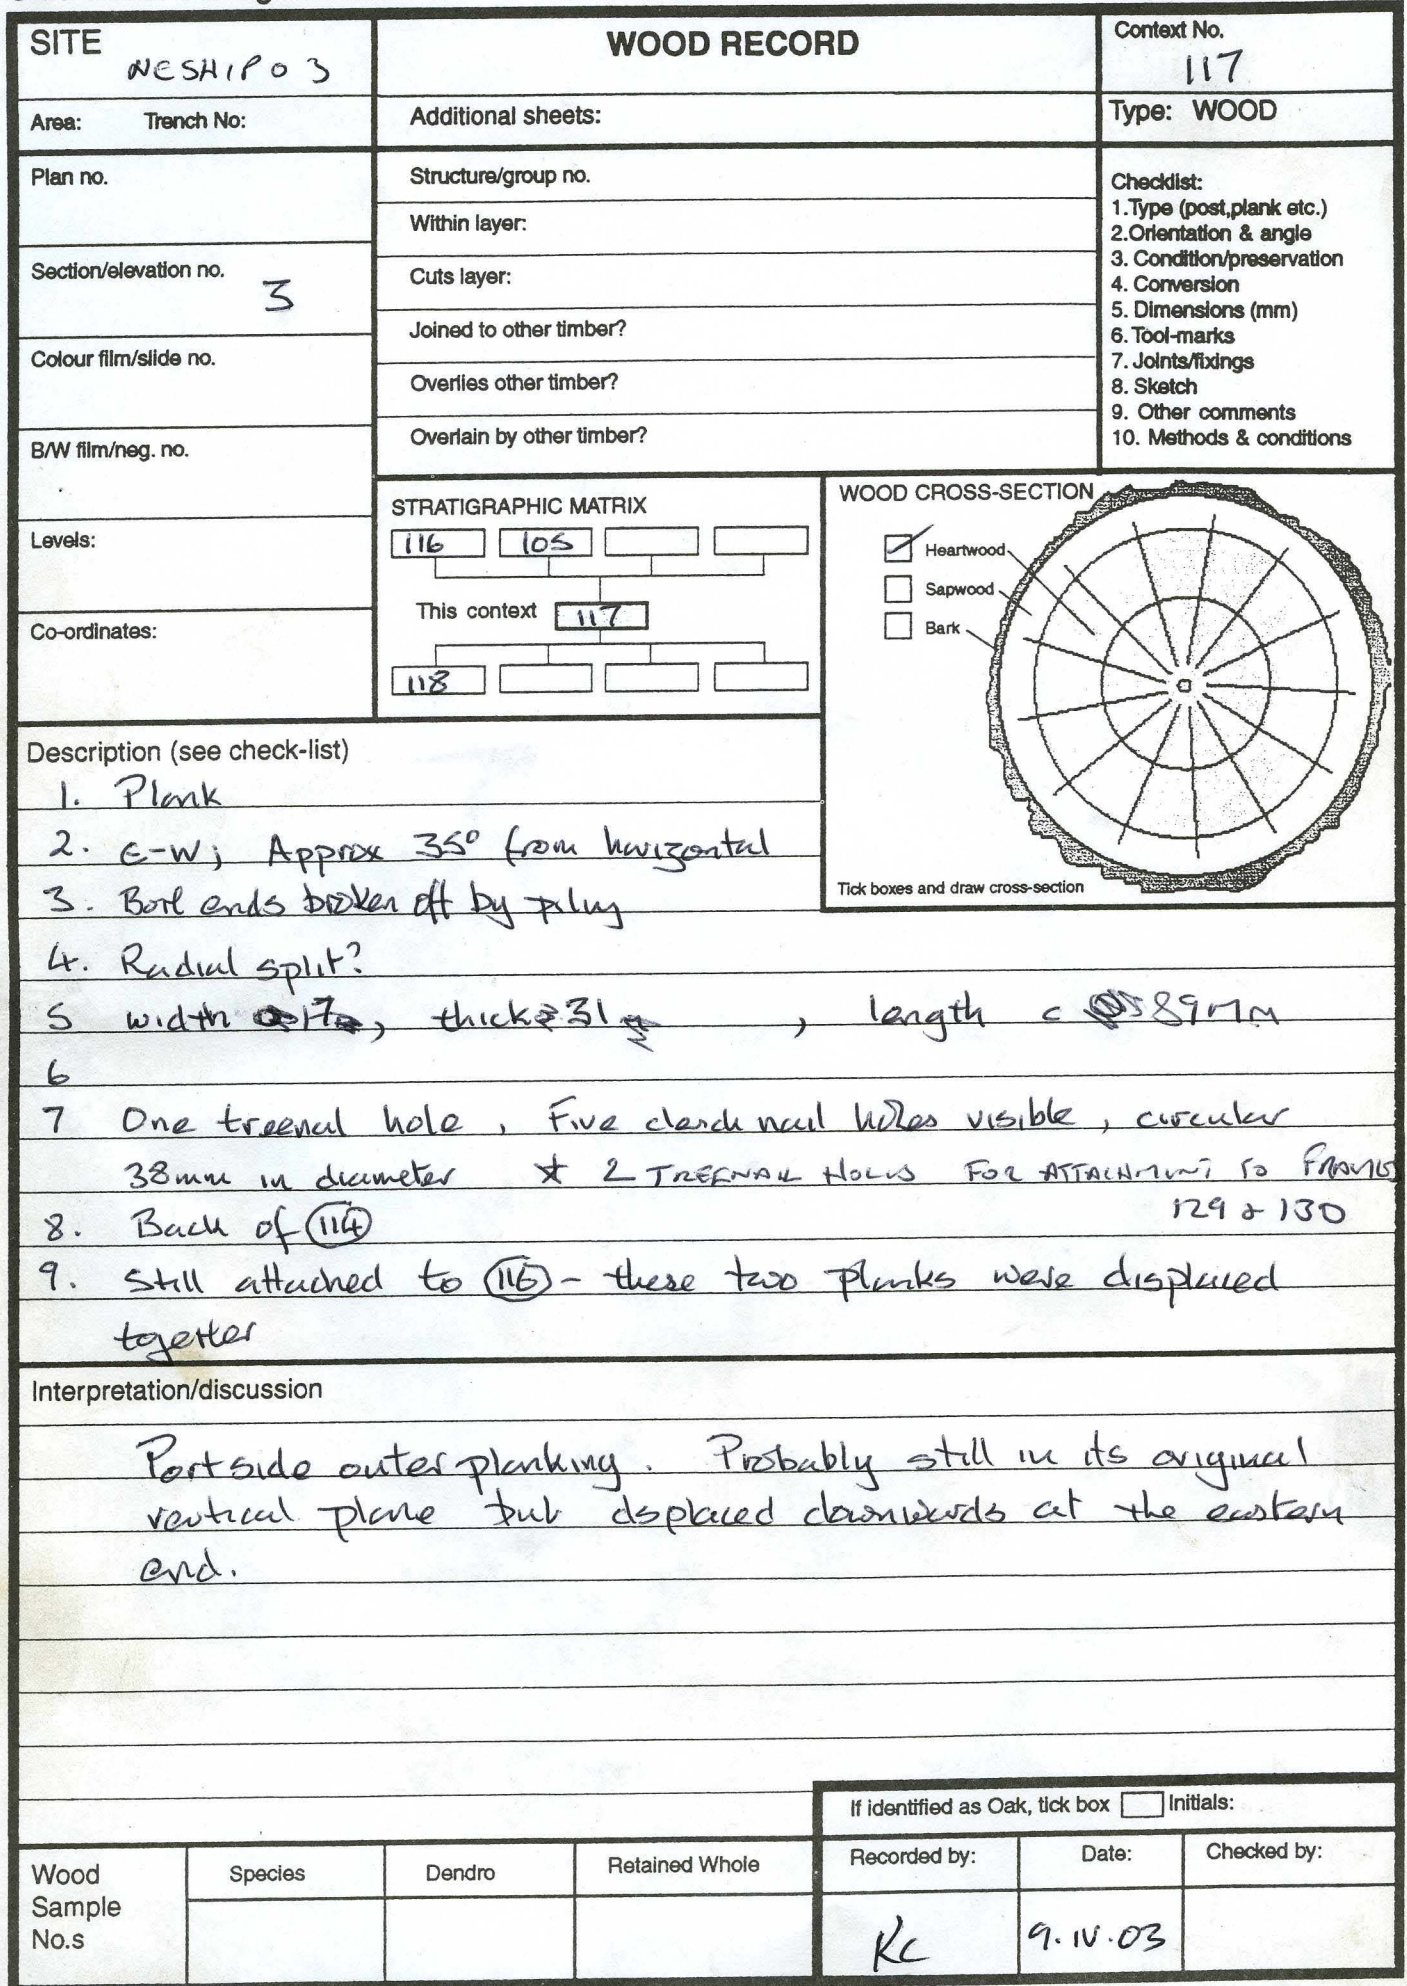 SITE
NESHIP03
WOOD RECORD
Context No.
117
Area: Trench No:
Additional sheets:
Type: WOOD
Plan no.
Structure/group no.
Within layer:
Section/elevation no.
3
Cuts layer:
Joined to other timber?
Colour film/slide no.
Overlies other timber?
B/W film/neg. no.
Overlain by other timber?
Checklist:
1.Type (post,plank etc.)
2.Orientation & angle
3. Condition/preservation
4. Conversion
5. Dimensions (mm)
6. Tool-marks
7. Joints/fixings
8. Sketch
9. Other comments
10. Methods & conditions
Levels:
Co-ordinates:
STRATIGRAPHIC MATRIX
116 105
This context 117
118
WOOD CROSS-SECTION
Heartwood
Sapwood
Bark
Tick boxes and draw cross-section
Description (see check-list)
1. Plank
2. E-W; Approx 35° from horizontal
3. Both ends broken off by piling
4. Radial split?
5 width 17, thick 31, length c 89mm
6
7 One treenail hole, Five clench nail holes visible, circular
38mm in diameter * 2 TREENAIL HOLES FOR ATTACHMENT TO FRAMES
129 & 130
8. Back of 114
9. Still attached to 116 - these two planks were displaced
together
Interpretation/discussion
Portside outer planking. Probably still in its original
vertical plane but displaced downwards at the eastern
end.
If identified as Oak, tick box Initials:
Wood
Sample
No.s
Species
Dendro
Retained Whole
Recorded by:
KC
Date:
9.IV.03
Checked by: